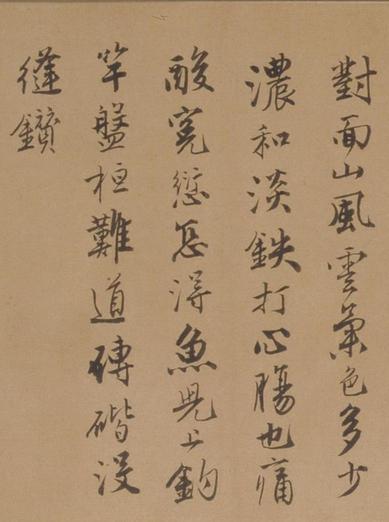 對面山風雲氣色多少
濃和淡鉄打心腸也痛
酸寃愆怎得魚兒上鈎
竿盤桓難道磚䃈没
縫鑽